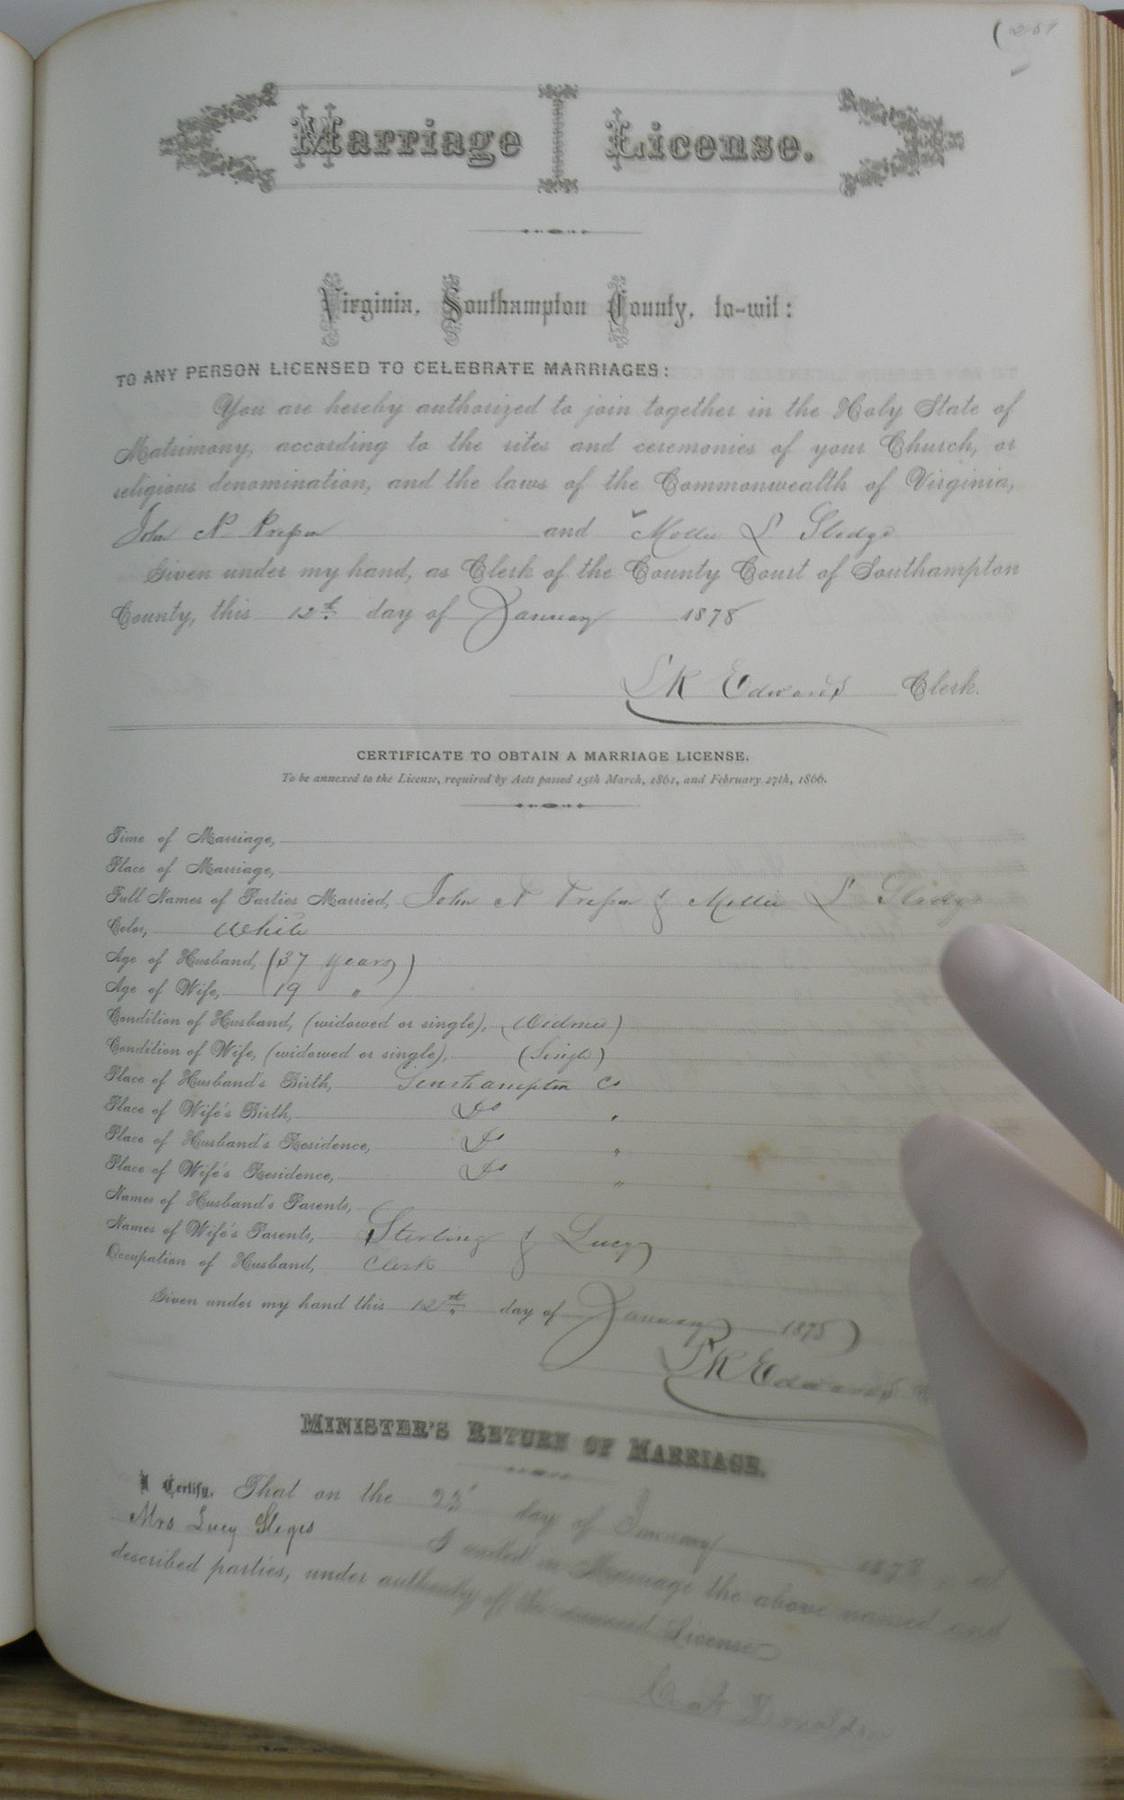 Marriage License.
Virginia, Southampton County, to-wit:
TO ANY PERSON LICENSED TO CELEBRATE MARRIAGES:
You are hereby authorized to join together in the Holy State of
Matrimony, according to the rites and ceremonies of your Church, or
religious denomination, and the laws of the Commonwealth of Virginia,
John and Mollie L Sledge
Given under my hand, as Clerk of the County Court of Southampton
County, this 12th day of January 1878
L R Edwards Clerk.
CERTIFICATE TO OBTAIN A MARRIAGE LICENSE.
To be annexed to the License, required by Acts passed 15th March, 1861, and February 27th, 1866.
Time of Marriage,
Place of Marriage,
Full Names of Parties Married, John & Mollie L Sledge
Color, White
Age of Husband, (37 years)
Age of Wife, 19 "
Condition of Husband, (widowed or single), (Widower)
Condition of Wife, (widowed or single), (Single)
Place of Husband's Birth, Southampton Co
Place of Wife's Birth, Do "
Place of Husband's Residence, Do "
Place of Wife's Residence, Do "
Names of Husband's Parents,
Names of Wife's Parents, Sterling & Lucy
Occupation of Husband, Clerk
Given under my hand this 12th day of January 1878
L R Edwards
MINISTER'S RETURN OF MARRIAGE.
I Certify, That on the 23' day of January 1878, at
Mrs Lucy I united in Marriage the above named and
described parties, under authority of the annexed License
Donaldson